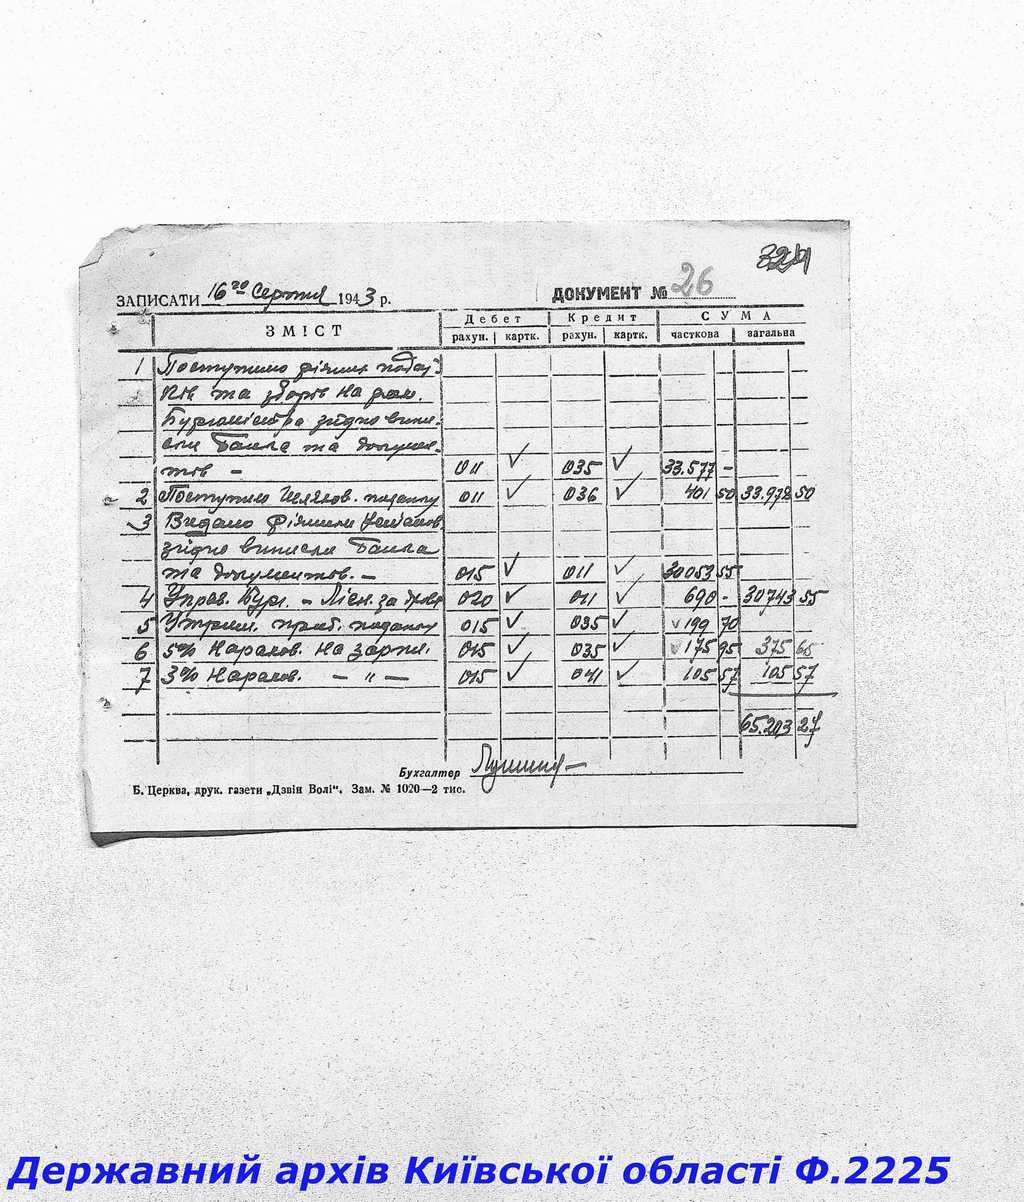 324
ЗАПИСАТИ 16го Серпня 1943 р. ДОКУМЕНТ № 26
ЗМІСТ Дебет Кредит СУМА
рахун. картк. рахун. картк. часткова загальна
1 Поступило різних подат
ків та зборів на рах.
Бургомістра згідно випи-
ски Банка та докумен-
тів - 011 ✓ 035 ✓ 33.577 -
2 Поступило податку 011 ✓ 036 ✓ 401 50 33.978 50
3 Видано різними
згідно виписки Банка
та документів. - 015 ✓ 011 ✓ 30053 55
4 Управ. Бург. - Лісн. за дрова 020 ✓ 011 ✓ 690 - 30743 55
5 Утрим. приб. податку 015 ✓ 035 ✓ ✓ 199 70
6 5% Нарахов. на зарпл. 015 ✓ 035 ✓ ✓ 175 95 375 65
7 3% Нарахов. — „ — 015 ✓ 041 ✓ 105 57 105 57
65.203 27
Бухгалтер
Б. Церква, друк. газети „Дзвін Волі“. Зам. № 1020—2 тис.
Державний архів Київської області Ф.2225